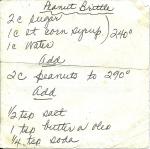 Peanut Brittle
2 c sugar
1 c lt corn syrup } 240°
1 c water
Add
2 c peanuts to 290°
Add
1/2 tsp salt
1 tsp butter or oleo
1/4 tsp soda